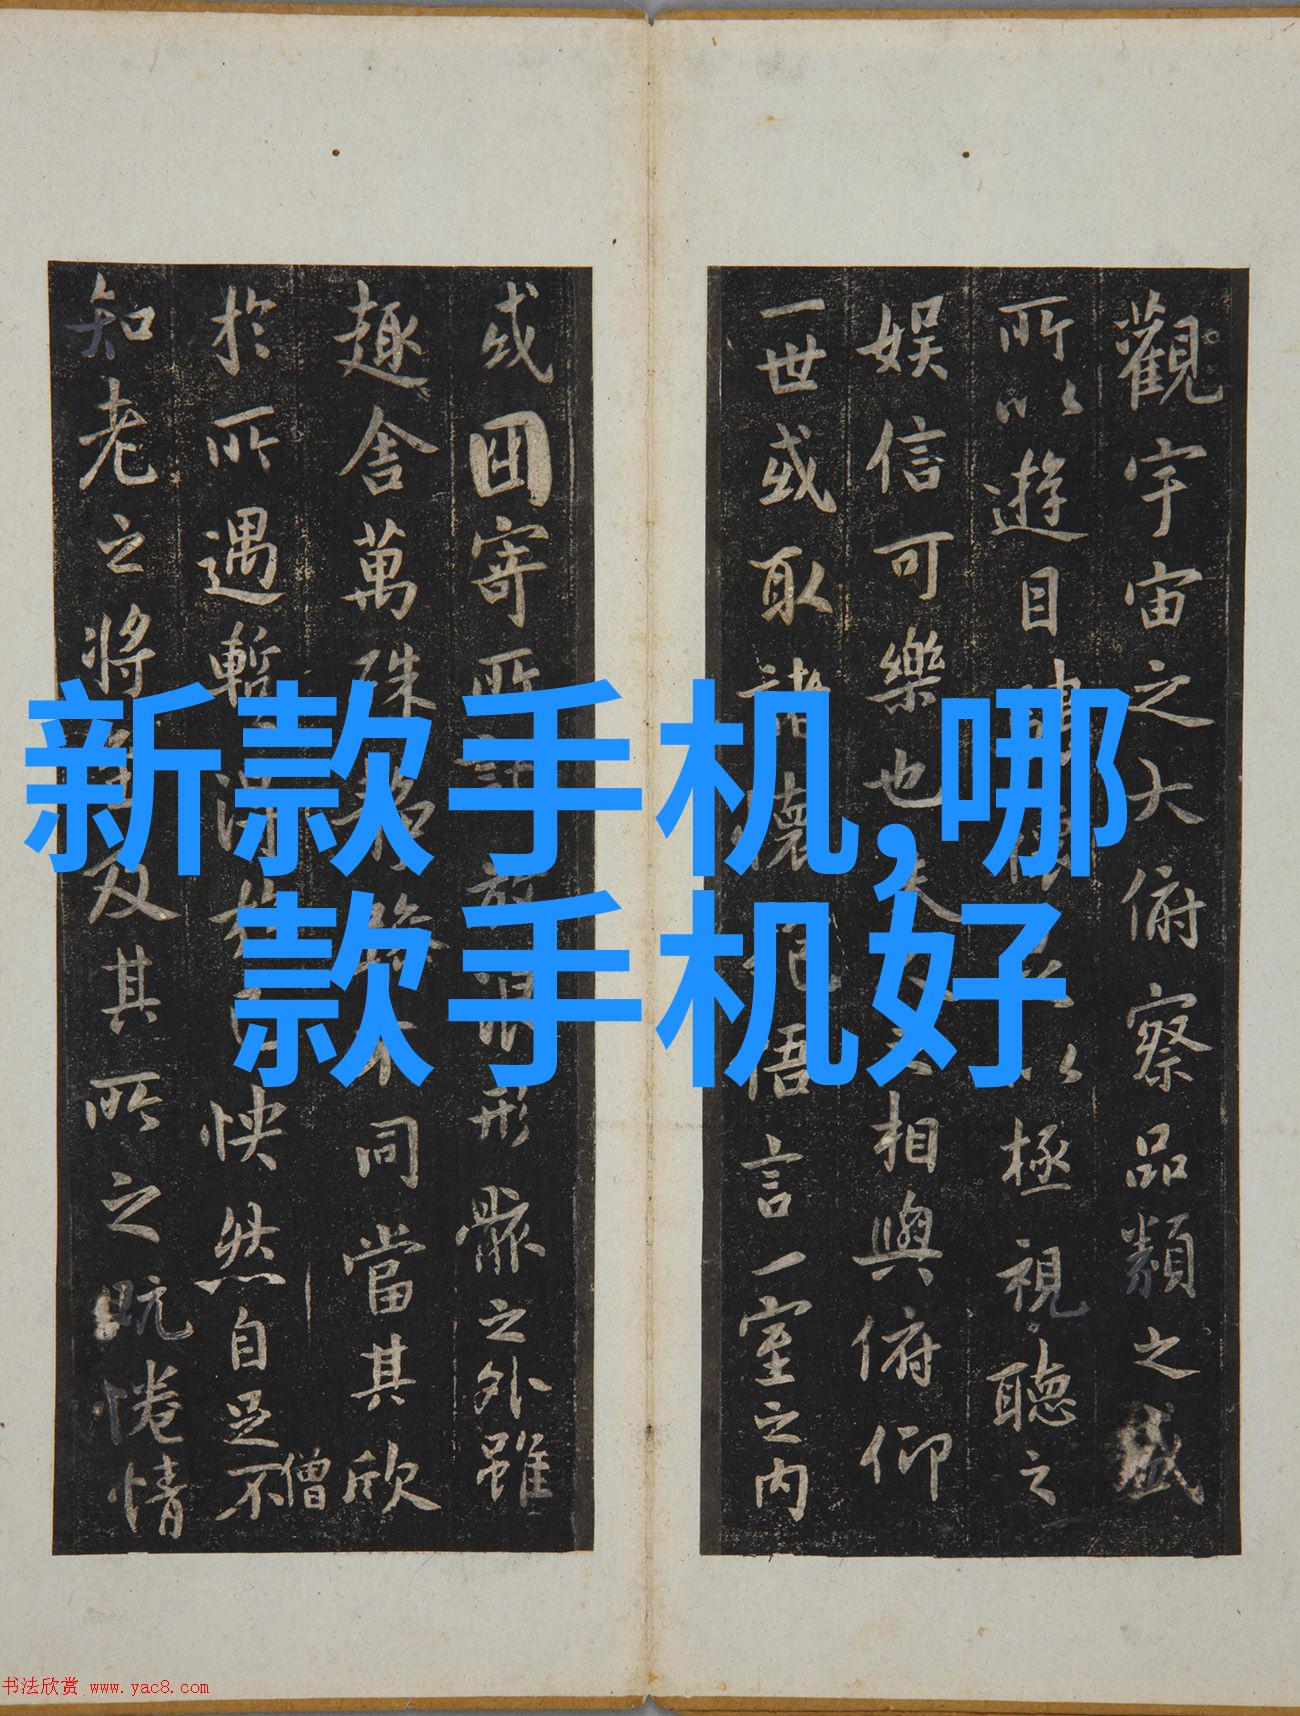 新款手机,哪
款手机好
觀宇宙之大俯察品類之盛
所以遊目以極視聽之
娛信可樂也夫之相與俯仰
一世或取諸懷抱悟言一室之内
或因寄所形骸之外雖
趣舍萬殊不同當其欣
於所遇暫快然自足不
僧
知老之將及其所之既惓情
书法欣赏 www.yac8.com